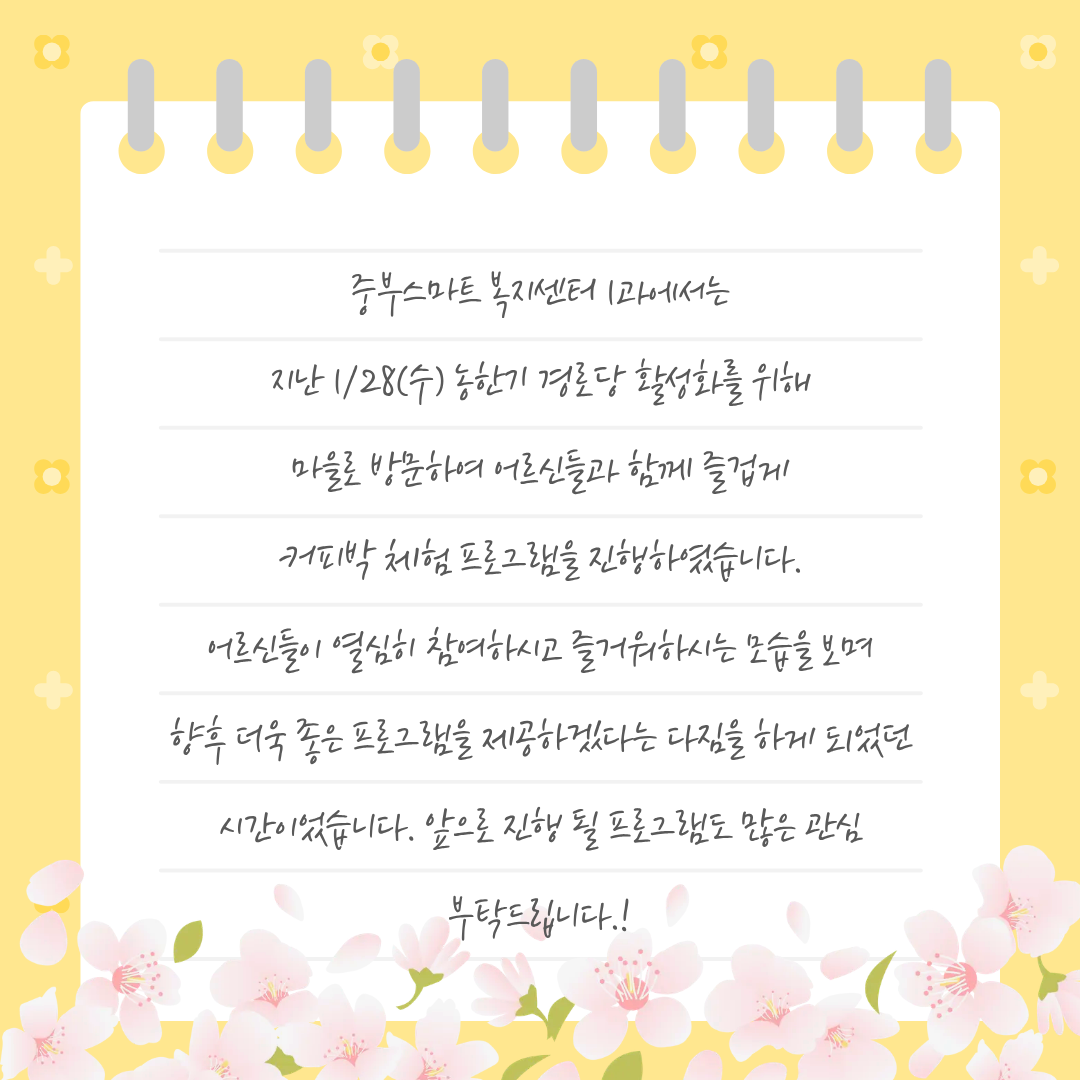 중부스마트 복지센터 1과에서는
지난 1/28(수) 농한기 경로당 활성화를 위해
마을로 방문하여 어르신들과 함께 즐겁게
커피박 체험 프로그램을 진행하였습니다.
어르신들이 열심히 참여하시고 즐거워하시는 모습을 보며
향후 더욱 좋은 프로그램을 제공하겠다는 다짐을 하게 되었던
시간이었습니다. 앞으로 진행 될 프로그램도 많은 관심
부탁드립니다.!